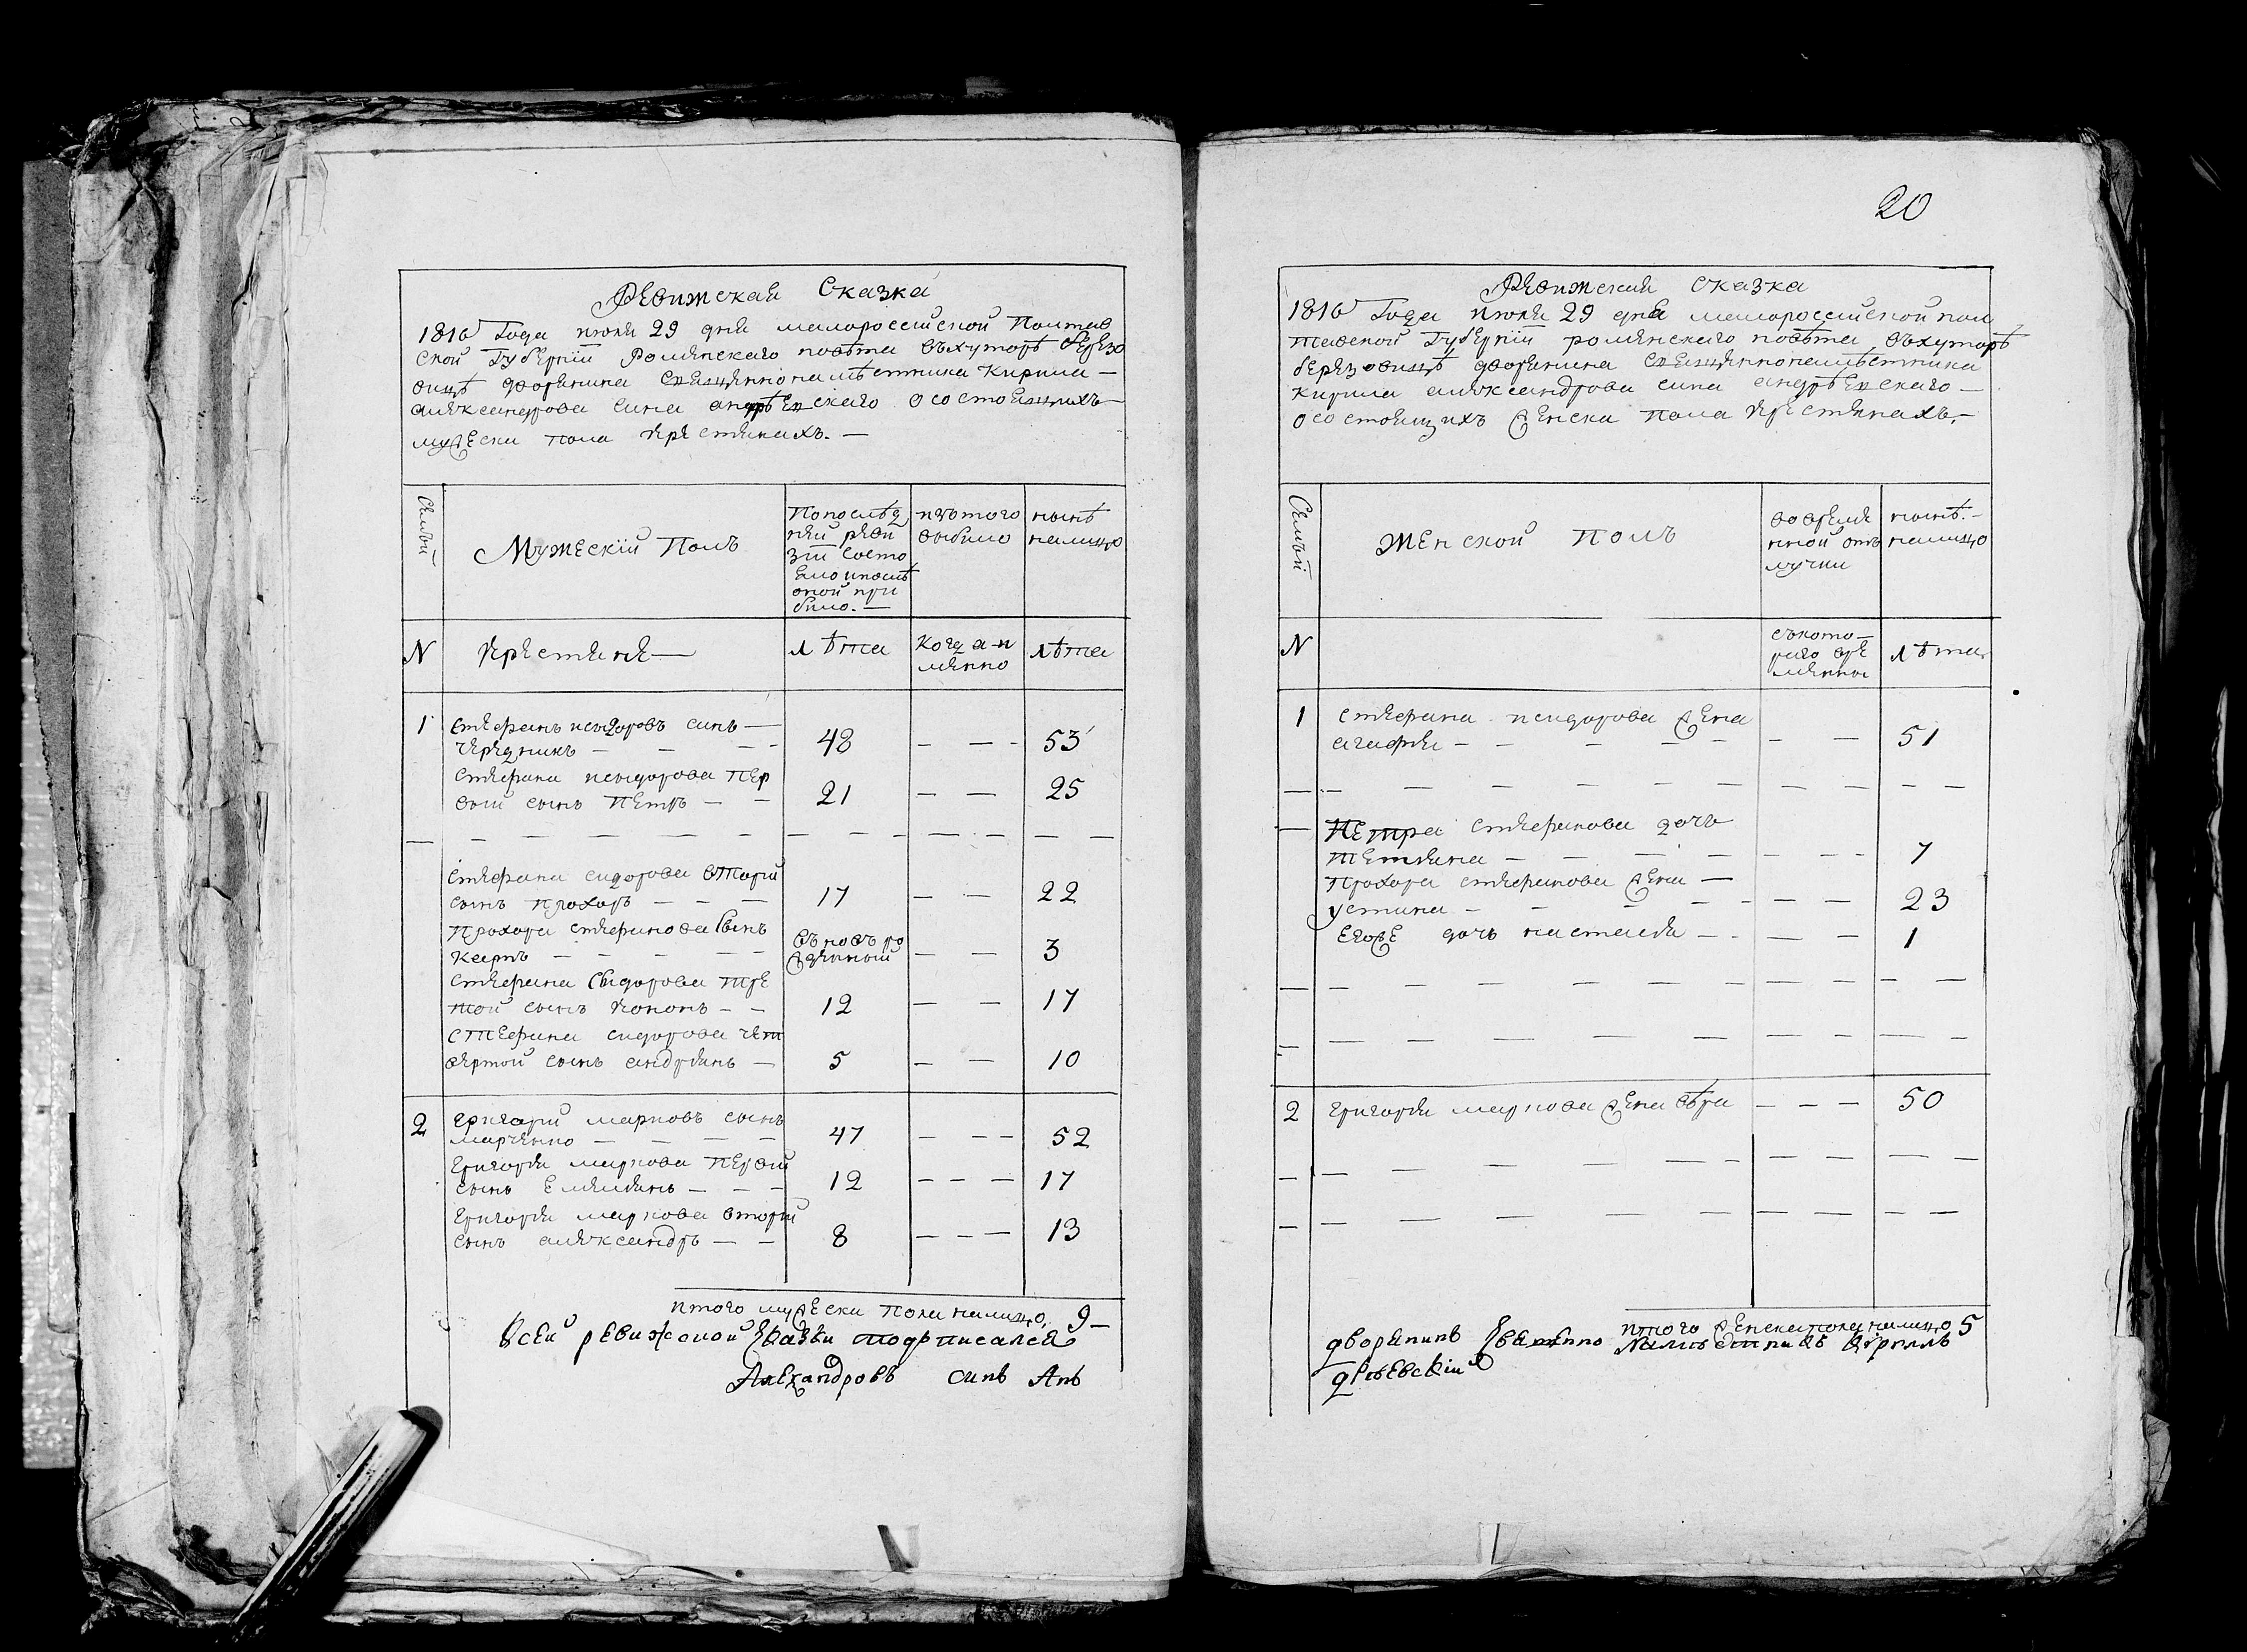 Ревижская Сказка
1816 Года июня 29 дня малороссийской Полтав
ской Губернїи Роменскаго повѣта въхуторѣ березо
вицѣ дворянина Священнонамѣстника Кирила —
александрова сина андрѣевскаго осостоящихъ —
мужеска пола крестянахъ. —
Семьи
Мужескїй Полъ
Попослѣд
ней реви
зїи состо
яло ипослѣ
оной при
било. —
изътого
выбило
нынѣ
налицо
N
крестяне —
лѣта
Когда и
мянно
лѣта
1 стефанъ исидоровъ синъ —
чередникъ — — — 48 — — - 53
стефана исидорова пер
вий сынъ петръ — — 21 — — 25
стефана сидорова вторий
сынъ прохоръ — — — 17 — — 22
прохора стефанова сынъ
карпъ — — — — — въновъ ро
жденный — — 3
стефана сидорова тре
той сынъ кононъ — — 12 — — 17
стефана сидорова чет
вертой сынъ андреянъ — 5 — — 10
2 григорий марковъ сынъ
марченко — — — — 47 — — — 52
григория маркова первий
сынъ емелиянъ — — — 12 — — — 17
григория маркова вторий
сынъ александръ — — 8 — — — 13
итого мужеска пола налицо, 9 —
Ксей ревижской сказки подписался
Александровъ синъ Анъ
20
Ревижская сказка
1816 Года июня 29 дня малороссийской пол
тавской Губернїи роменскаго повѣта въхуторѣ
березовицѣ дворянина священнонамѣстника
кирила александрова сина андрѣевскаго —
осостоящихъ женска пола крестянахъ. —
Семьи
Женской Полъ
вовреме
нной отъ
лучки
нынѣ. —
налицо
N
съкото —
раго вре
менны
лѣта
1 стефана исидорова жена
агафия — — — — — — — 51
Петра стефанова дочъ
тетяна — — — — — — - 7
прохора стефанова жена —
устина — — — — - — — 23
егоже дочъ настасия — - — — 1
2 григория маркова жена вѣра — — — 50
итого женска пола налицо 5
дворянинъ намѣстникъ Кирилъ
дрѣевскїй